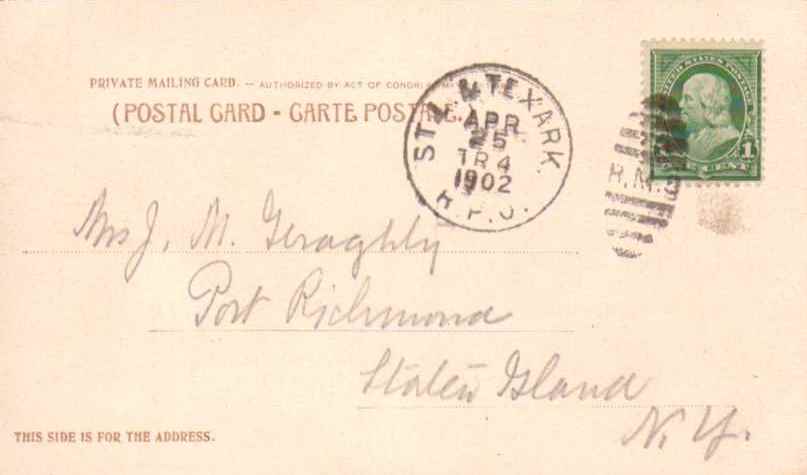 PRIVATE MAILING CARD. — AUTHORIZED BY ACT OF
(POSTAL CARD - CARTE POSTALE.)
ST. L. & TEXARK.
APR
25
TR 4
1902
R.P.O.
UNITED STATES POSTAGE
1
CENT
R.M.S.
Mrs J. M. Geraghty
Port Richmond
Staten Island
N. Y.
THIS SIDE IS FOR THE ADDRESS.